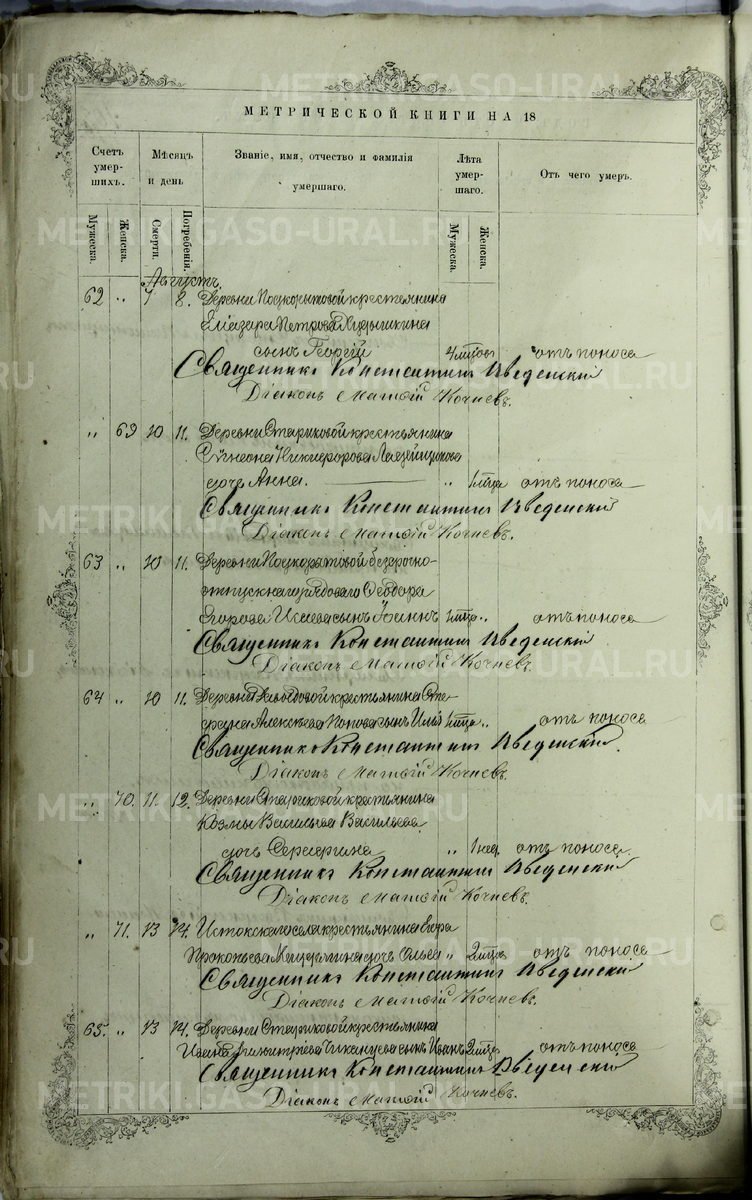 МЕТРИЧЕСКОЙ КНИГИ НА 18
Счетъ умер-шихъ. Мѣсяцъ и день Званіе, имя, отчество и фамилія умершаго. Лѣта умер-шаго. Отъ чего умеръ.
Мужеска. Женска. Смерти. Погребенія. Мужеска. Женска.
Августъ.
62 „ 7 8. Деревни крестьянина
Елиазара Петрова
сынъ Георгій 4 мцов отъ поноса
Священникъ Константинъ Введенскій
Діаконъ Матѳій Кочневъ.
„ 69 10 11. Деревни Стариковой крестьянина
Сѵмеона Никифорова
дочь Анна. „ 1 мца отъ поноса
Священникъ Константинъ Введенскій
Діаконъ Матѳій Кочневъ.
63 „ 10 11. Деревни безсрочно-
отпускнаго рядоваго Ѳеодора
Егорова Исаева сынъ Іоаннъ 1 мца „ отъ поноса
Священникъ Константинъ Введенскій
Діаконъ Матѳій Кочневъ.
64 „ 10 11. Деревни Давыдовой крестьянина Сте-
фана Алексѣева Попова сынъ Илья 1 мца „ отъ поноса
Священникъ Константинъ Введенскій.
Діаконъ Матѳій Кочневъ.
„ 70. 11. 12. Деревни Стариковой крестьянина
Козмы Васильева Васильева
дочь „ 1 нед. отъ поноса
Священникъ Константинъ Введенскій
Діаконъ Матѳій Кочневъ.
„ 71. 13 14. Истокскаго села крестьянина
Прокопьева дочь „ 2 мцов отъ поноса
Священникъ Константинъ Введенскій
Діаконъ Матѳій Кочневъ.
65. „ 13 14. Деревни Стариковой крестьянина
Ивана Димитріева сынъ Иванъ 2 мцов отъ поноса
Священникъ Константинъ Введенскій
Діаконъ Матѳій Кочневъ.
METRIKI.GASO-URAL.RU